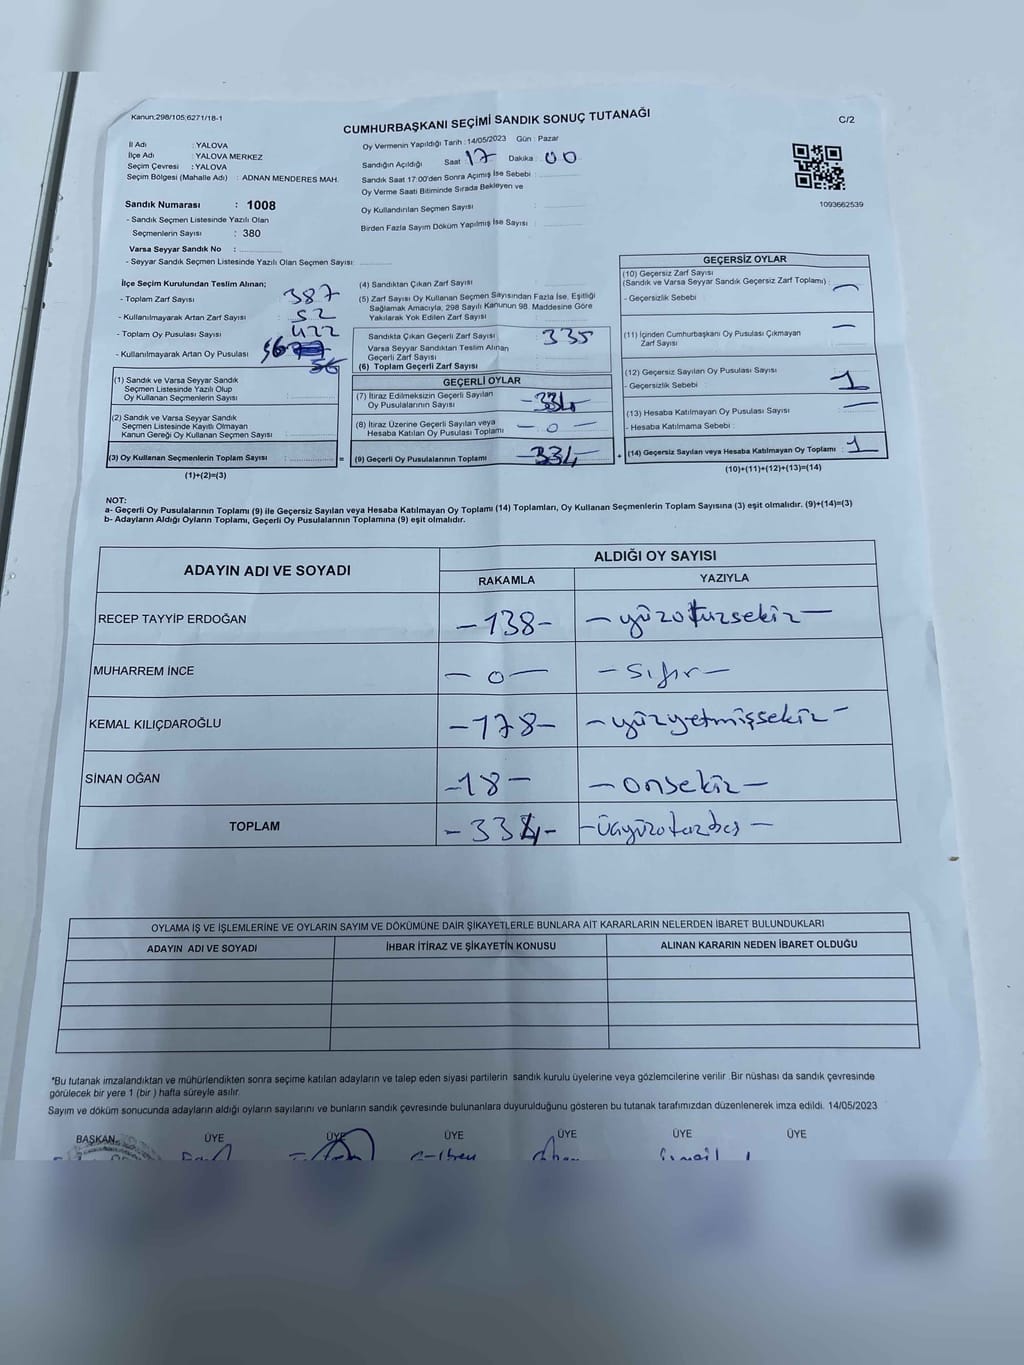 Kanun:298/105;6271/18-1
CUMHURBAŞKANI SEÇİMİ SANDIK SONUÇ TUTANAĞI
C/2
İl Adı : YALOVA
İlçe Adı : YALOVA MERKEZ
Seçim Çevresi : YALOVA
Seçim Bölgesi (Mahalle Adı) : ADNAN MENDERES MAH.
Oy Vermenin Yapıldığı Tarih : 14/05/2023 Gün : Pazar
Sandığın Açıldığı Saat 17 Dakika : 00
Sandık Saat 17:00'den Sonra Açımış İse Sebebi :
Oy Verme Saati Bitiminde Sırada Bekleyen ve
Oy Kullandırılan Seçmen Sayısı :
Birden Fazla Sayım Döküm Yapılmış İse Sayısı :
1093662539
Sandık Numarası : 1008
- Sandık Seçmen Listesinde Yazılı Olan
Seçmenlerin Sayısı : 380
Varsa Seyyar Sandık No :
- Seyyar Sandık Seçmen Listesinde Yazılı Olan Seçmen Sayısı:
İlçe Seçim Kurulundan Teslim Alınan;
- Toplam Zarf Sayısı : 387
- Kullanılmayarak Artan Zarf Sayısı : 52
- Toplam Oy Pusulası Sayısı : 422
- Kullanılmayarak Artan Oy Pusulası
56
(1) Sandık ve Varsa Seyyar Sandık
Seçmen Listesinde Yazılı Olup
Oy Kullanan Seçmenlerin Sayısı :
(2) Sandık ve Varsa Seyyar Sandık
Seçmen Listesinde Kayıtlı Olmayan
Kanun Gereği Oy Kullanan Seçmen Sayısı :
(3) Oy Kullanan Seçmenlerin Toplam Sayısı :
=
(1)+(2)=(3)
(4) Sandıktan Çıkan Zarf Sayısı :
(5) Zarf Sayısı Oy Kullanan Seçmen Sayısından Fazla İse, Eşitliği
Sağlamak Amacıyla, 298 Sayılı Kanunun 98. Maddesine Göre
Yakılarak Yok Edilen Zarf Sayısı :
Sandıkta Çıkan Geçerli Zarf Sayısı : 335
Varsa Seyyar Sandıktan Teslim Alınan
Geçerli Zarf Sayısı :
(6) Toplam Geçerli Zarf Sayısı :
GEÇERLİ OYLAR
(7) İtiraz Edilmeksizin Geçerli Sayılan
Oy Pusulalarının Sayısı : -334-
(8) İtiraz Üzerine Geçerli Sayılan veya
Hesaba Katılan Oy Pusulası Toplamı : - 0 -
(9) Geçerli Oy Pusulalarının Toplamı : -334-
+
GEÇERSİZ OYLAR
(10) Geçersiz Zarf Sayısı
(Sandık ve Varsa Seyyar Sandık Geçersiz Zarf Toplamı) : -
- Geçersizlik Sebebi :
(11) İçinden Cumhurbaşkanı Oy Pusulası Çıkmayan
Zarf Sayısı : -
(12) Geçersiz Sayılan Oy Pusulası Sayısı :
- Geçersizlik Sebebi : 1
(13) Hesaba Katılmayan Oy Pusulası Sayısı : -
- Hesaba Katılmama Sebebi :
(14) Geçersiz Sayılan veya Hesaba Katılmayan Oy Toplamı : 1
(10)+(11)+(12)+(13)=(14)
NOT:
a- Geçerli Oy Pusulalarının Toplamı (9) ile Geçersiz Sayılan veya Hesaba Katılmayan Oy Toplamı (14) Toplamları, Oy Kullanan Seçmenlerin Toplam Sayısına (3) eşit olmalıdır. (9)+(14)=(3)
b- Adayların Aldığı Oyların Toplamı, Geçerli Oy Pusulalarının Toplamına (9) eşit olmalıdır.
ADAYIN ADI VE SOYADI
ALDIĞI OY SAYISI
RAKAMLA YAZIYLA
RECEP TAYYİP ERDOĞAN -138- - yüzotuzsekiz -
MUHARREM İNCE - 0 - - sıfır -
KEMAL KILIÇDAROĞLU -178- - yüzyetmişsekiz -
SİNAN OĞAN -18- - onsekiz -
TOPLAM -334-
OYLAMA İŞ VE İŞLEMLERİNE VE OYLARIN SAYIM VE DÖKÜMÜNE DAİR ŞİKAYETLERLE BUNLARA AİT KARARLARIN NELERDEN İBARET BULUNDUKLARI
ADAYIN ADI VE SOYADI İHBAR İTİRAZ VE ŞİKAYETİN KONUSU ALINAN KARARIN NEDEN İBARET OLDUĞU
*Bu tutanak imzalandıktan ve mühürlendikten sonra seçime katılan adayların ve talep eden siyasi partilerin sandık kurulu üyelerine veya gözlemcilerine verilir .Bir nüshası da sandık çevresinde
görülecek bir yere 1 (bir ) hafta süreyle asılır.
Sayım ve döküm sonucunda adayların aldığı oyların sayılarını ve bunların sandık çevresinde bulunanlara duyurulduğunu gösteren bu tutanak tarafımızdan düzenlenerek imza edildi. 14/05/2023
BAŞKAN ÜYE ÜYE ÜYE ÜYE ÜYE ÜYE